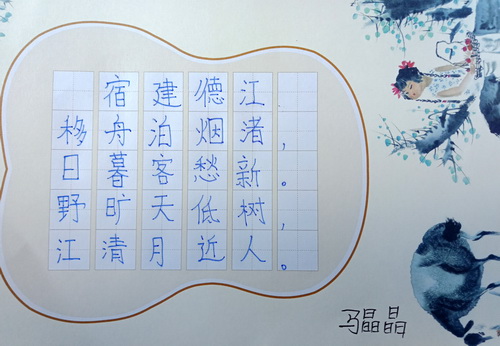 宿建德江
移舟泊烟渚，
日暮客愁新。
野旷天低树，
江清月近人。
马晶晶